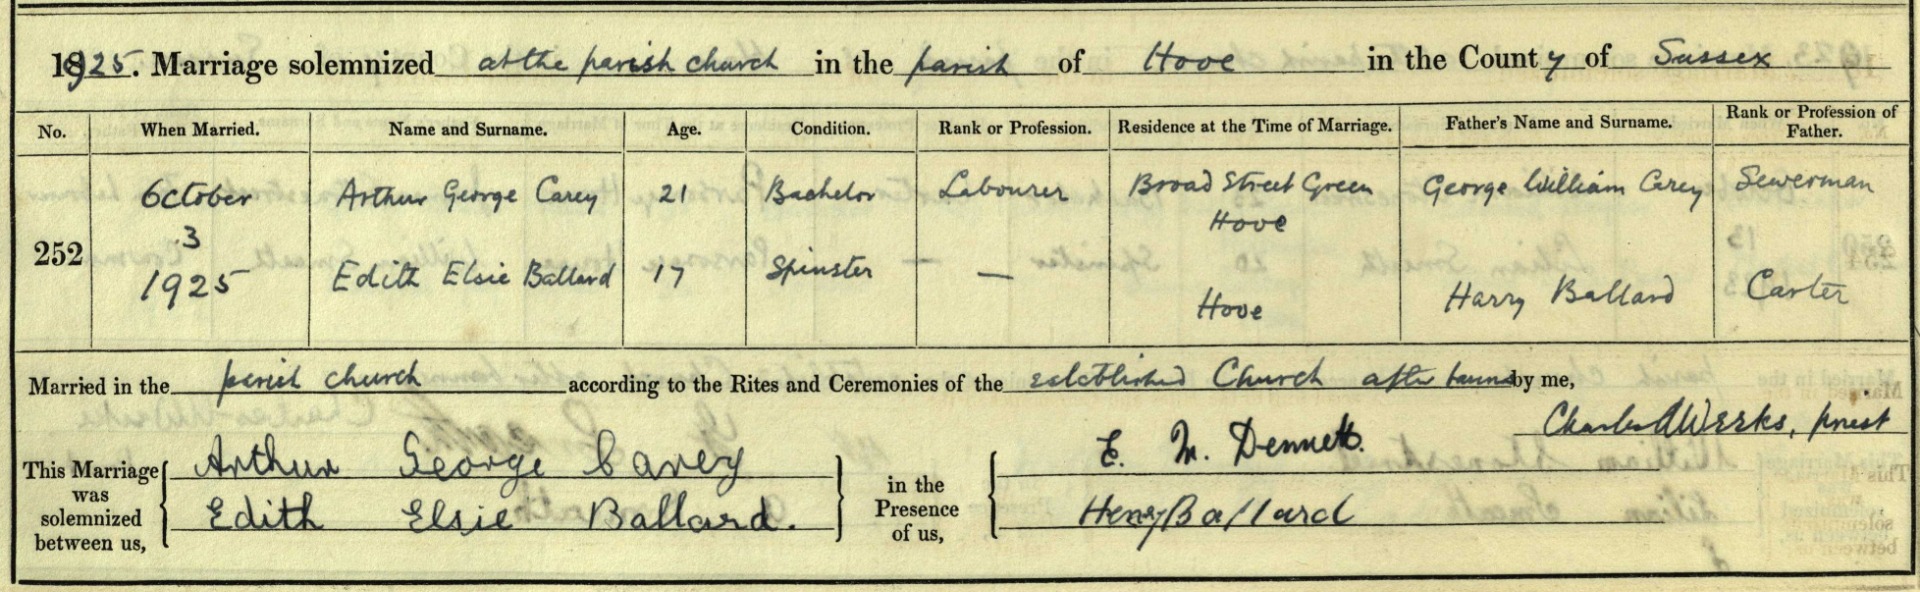 1925. Marriage solemnized at the parish church in the parish of Hove in the County of Sussex
No. When Married. Name and Surname. Age. Condition. Rank or Profession. Residence at the Time of Marriage. Father's Name and Surname. Rank or Profession of Father.
252 October 3 1925 Arthur George Carey 21 Bachelor Labourer Broad Street Green Hove George William Carey Sewerman
Edith Elsie Ballard 17 Spinster — Hove Harry Ballard Carter
Married in the parish church according to the Rites and Ceremonies of the established Church after banns by me,
Charles A Weeks, priest
This Marriage was solemnized between us, Arthur George Carey in the Presence of us, E. M. Dennett.
Edith Elsie Ballard. Henry Ballard